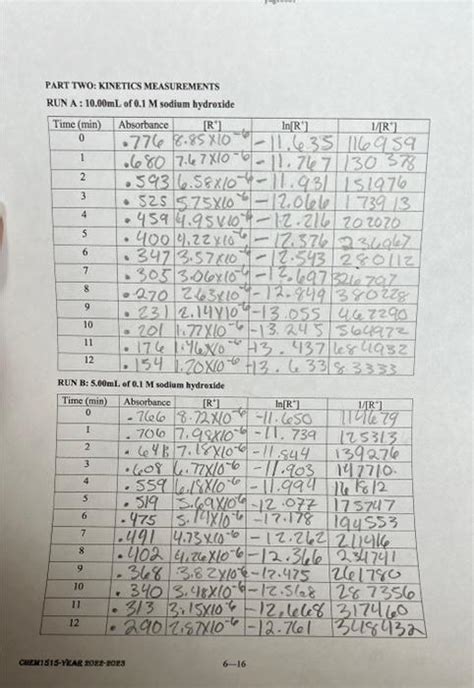 PART TWO: KINETICS MEASUREMENTS
RUN A : 10.00mL of 0.1 M sodium hydroxide
Time (min) Absorbance [R⁺] ln[R⁺] 1/[R⁺]
0 .776 8.85X10⁻⁶ -11.635 116959
1 .680 7.67X10⁻⁶ -11.767 130378
2 .593 6.58X10⁻⁶ -11.931 151976
3 .525 5.75X10⁻⁶ -12.066 173913
4 .459 4.95X10⁻⁶ -12.216 202020
5 .400 4.22X10⁻⁶ -12.376 236967
6 .347 3.57X10⁻⁶ -12.543 280112
7 .305 3.06X10⁻⁶ -12.697 326797
8 .270 2.63X10⁻⁶ -12.849 380228
9 .231 2.14X10⁻⁶ -13.055 467290
10 .201 1.77X10⁻⁶ -13.245 564972
11 .176 1.46X10⁻⁶ -13.437 684932
12 .154 1.20X10⁻⁶ -13.633 83333
RUN B: 5.00mL of 0.1 M sodium hydroxide
Time (min) Absorbance [R⁺] ln[R⁺] 1/[R⁺]
0 .766 8.72X10⁻⁶ -11.650 114679
1 .706 7.98X10⁻⁶ -11.739 125313
2 7.18X10⁻⁶ -11.844 139276
3 .608 6.77X10⁻⁶ -11.903 147710
4 .559 6.18X10⁻⁶ -11.994 161812
5 .519 5.69X10⁻⁶ -12.077 175747
6 .475 5.14X10⁻⁶ -12.178 194553
7 .491 4.73X10⁻⁶ -12.262 211416
8 .402 4.26X10⁻⁶ -12.366 234741
9 .368 3.82X10⁻⁶ -12.475 261780
10 .340 3.48X10⁻⁶ -12.568 287356
11 .313 3.15X10⁻⁶ -12.668 317460
12 .290 2.87X10⁻⁶ -12.761 348432
CHEM1515-YEAR 2022-2023 6—16